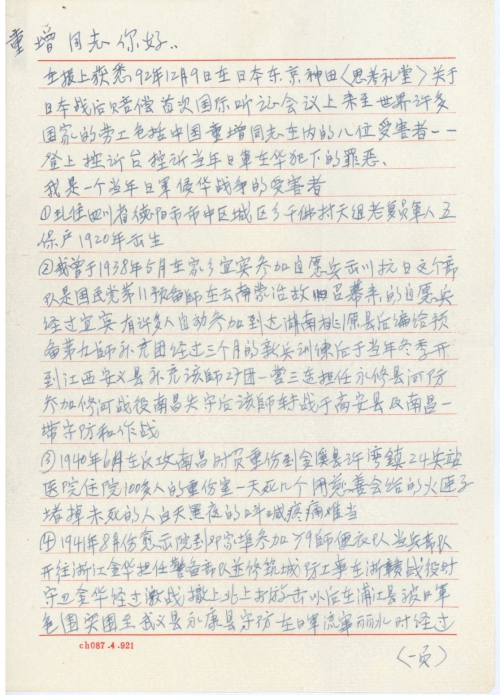 童增同志你好..
在报上获悉92年12月9日在日本东京神田〈思考礼堂〉关于
日本战后赔偿首次国际听证会议上来至世界许多
国家的劳工包括中国童增同志在内的八位受害者--
登上控诉台控诉当年日军在华犯下的罪恶、
我是一个当年日军侵华战争的受害者
①现住四川省德阳市市中区城区乡千佛村六组老复员军人五
保户1920年出生
②我曾于1938年5月在家乡宜宾参加自愿兵出川抗日这个部
队是国民党第11预备師在云南 召募来的自愿兵
经过宜宾有许多人自动参加到达湖南桃原县后编给预
备第九師补充团经过三个月的新兵训练后于当年冬季开
到江西安义县补充该師27团一营三连担任永修县河防
参加修河战役南昌失守后该師转战于高安县及南昌一
带守防和作战
③1940年6月在反攻南昌时负重伤到金溪县许湾鎮24兵站
医院住院100多人的重伤室一天死几个用慈善会给的火匣子
堵掉未死的人白天黑夜的口年喊疾痛难当
④1941年8月份 院到邓家埠参加79師便衣队当兵部队
开往浙江金华担任警备部队並修筑城防工事在浙赣战役时
守卫金华经过激战撤上北上打游击以后在浦江县被日軍
包围突围至武义县永康县守防在日軍流窜丽水时经过
ch087.4.921
(一页)